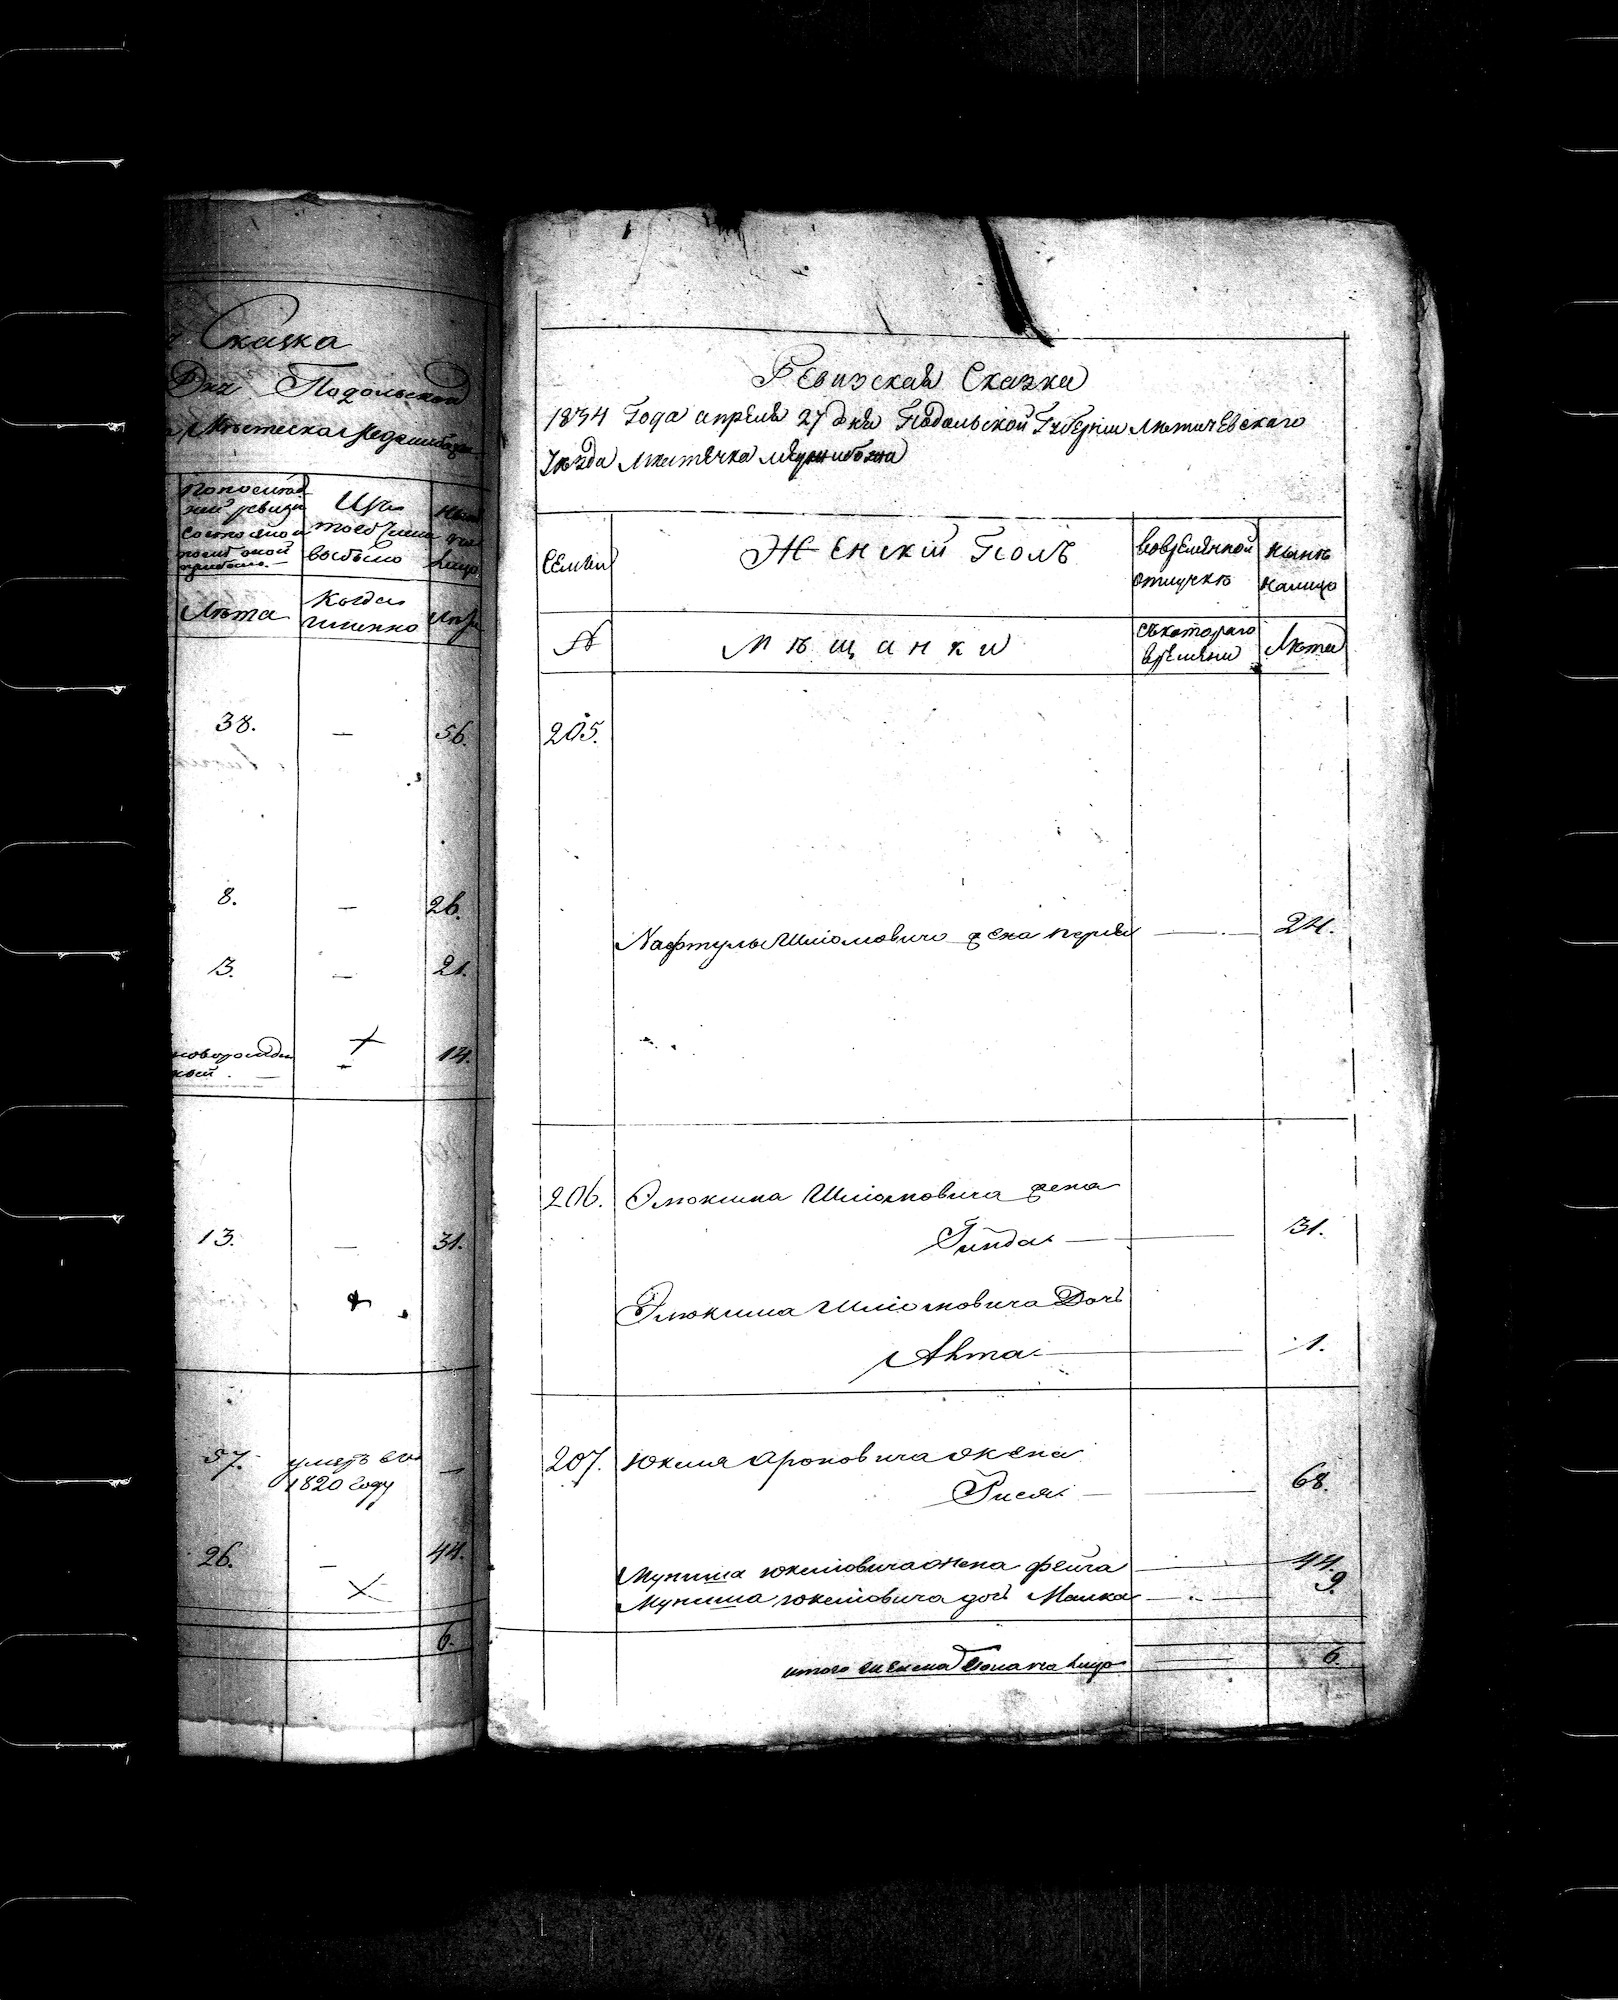 Сказка
Дня Подольской
Мѣстечка Меджибожа
Попослѣд
ней ревизіи
состояло и
послѣ оной
прибыло
Изъ
того числа
выбыло
Лѣта
Когда
имянно
Лѣта
38. — 56.
8. — 26.
3. — 21.
новорожден
ный — 14.
13. — 31.
57. умеръ въ —
1820 году
26. — 44.
6.
Ревизская Сказка
1834 Года апреля 27 дня Подольской Губерніи Летичевскаго
Уезда Местечка Меджибожа
Семьи
Женскій Полъ
вовремянной
отлучкѣ
нынѣ
налицо
№
Мѣщанки
съкотораго
времяни
Лѣта
205.
Нафтулы Шліомовича жена Перля — 24.
206. Элюкима Шліомовича жена
Гинда — 31.
Элюкима Шліомовича Дочь
— 1.
207. Юкеля Ароновича жена
Рися — 68.
Муниша Юкелiовича жена Фейга — 44.
Муниша Юкелiовича дочь Малка — 9.
итого женска Пола на лицо 6.